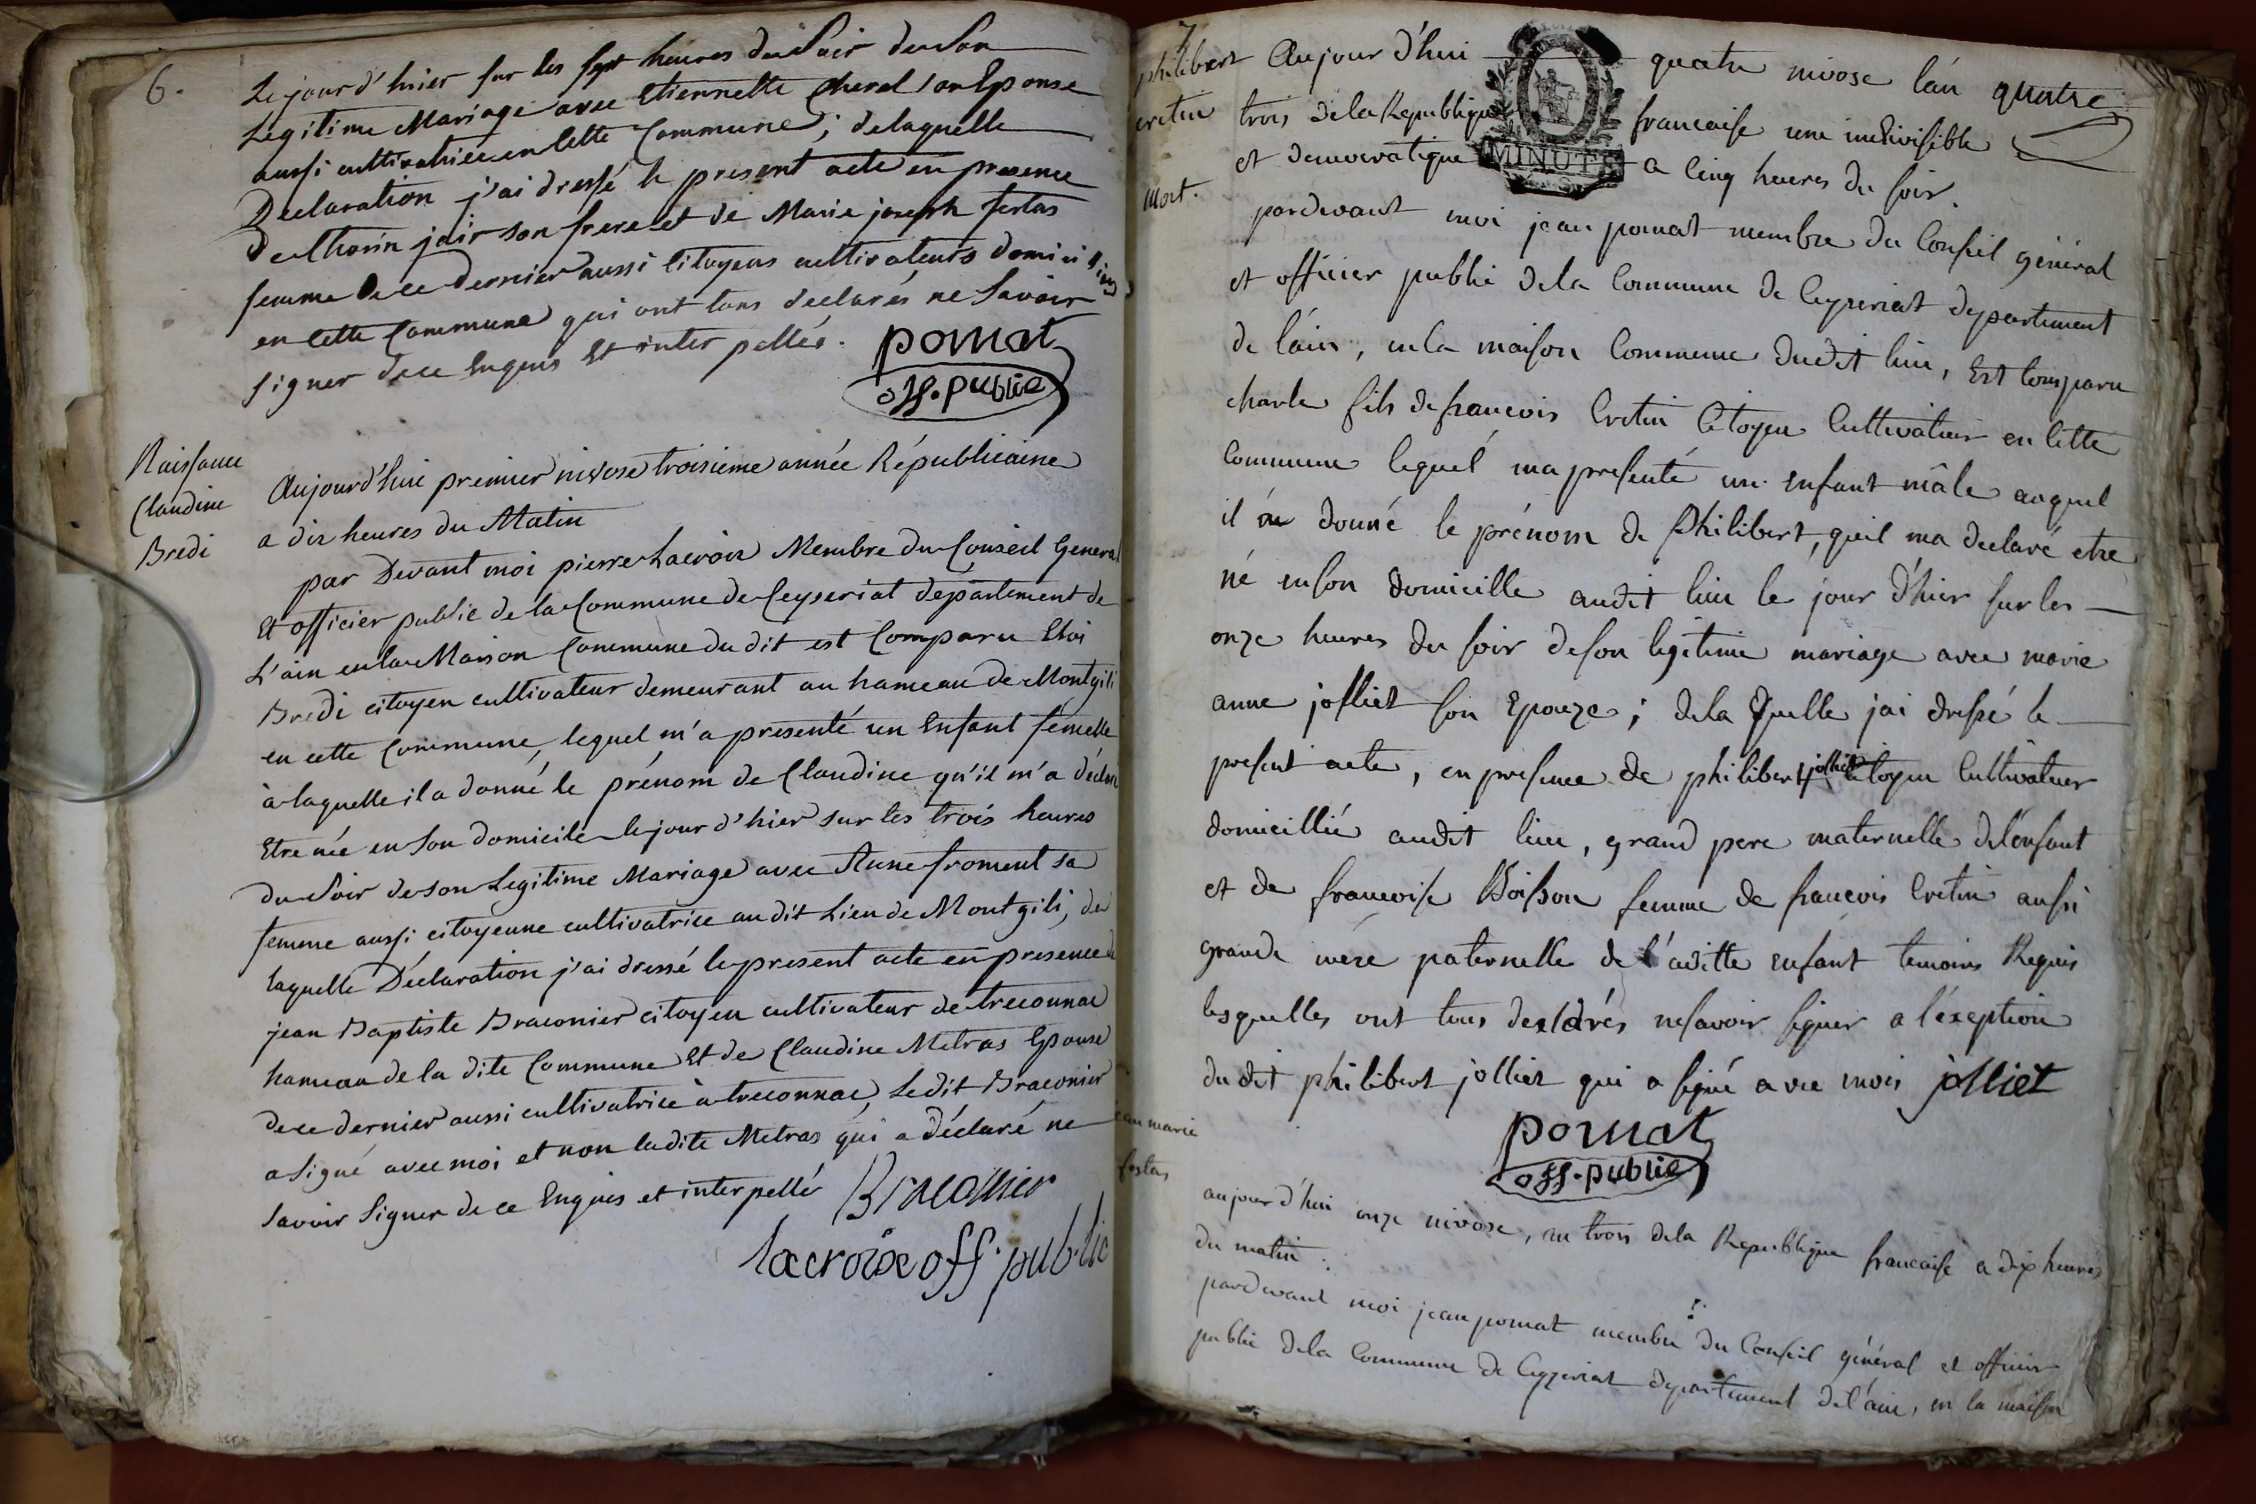 6.
Le jour d'hier sur les sept heures du Soir de Son
Legitime Mariage avec Etiennette Cherel son Epouse
aussi cultivatrice en Cette Commune; de laquelle
Declaration j'ai dressé le present acte en presence
de thorin jair son frere et de Marie joseph festas
femme de ce dernier aussi Citoyens cultivateurs domiciliés
en Cette Commune qui ont tous declarés ne Savoir
signer de ce Enquis Et inter pellés.
pomat
off. public
Naissance
Claudine
Bredi
Aujourd'hui premier nivose troisieme année Républicaine
a dix heures du Matin
par Devant moi pierre Lacroix Membre du Conseil General
Et officier public de la Commune de Ceyseriat département de
L'ain en la Maison Commune du dit est Comparu Eloi
Bredi citoyen cultivateur demeurant au hameau de Montgili
en cette Commune, lequel m'a presenté un Enfant femelle
à laquelle il a donné le prénom de Claudine qu'il m'a déclaré
Etre née en Son domicile le jour d'hier sur les trois heures
du Soir de son Legitime Mariage avec Anne froment sa
femme aussi citoyenne cultivatrice au dit Lieu de Montgili, de
laquelle Déclaration j'ai dressé le present acte en presence de
jean Baptiste Braconier citoyen cultivateur de treconnac
hameau de la dite Commune Et de Claudine Metras Epouse
de ce dernier aussi cultivatrice à treconnac, Ledit Braconier
a Signé avec moi et non ladite Metras qui a déclaré ne
Savoir Signer de ce Enquis et interpellé Braconier
lacroix off. public
7
philibert
cretin
Mort.
Aujour d'hui quatre nivose l'an quatre
trois de la Republique francaise une indivisible
et democratique MINUTE a cinq heures du soir.
pardevant moi jean pomat membre du Conseil général
et officier public de la Commune de Ceyzeriat departement
de l'ain, en la maison Commune dudit lieu, Est Comparu
charle fils de francois Cretin Citoyen Cultivateur en Cette
Commune lequel ma presenté un enfant mâle auquel
il a donné le prénom de Philibert, quil ma declaré etre
né en son domicille audit lieu le jour d'hier sur les
onze heures du soir de son legitime mariage avec marie
anne jolliet son Epouze; de la quelle jai dressé le
present acte, en presence de philibert jolliet Citoyen Cultivateur
domicillié audit lieu, grand pere maternelle de l'enfant
et de francoise Boisson femme de francois Cretin aussi
grande mére paternelle de l'aditte enfant temoins Requis
lesquelles ont tous declarés ne savoir signer a l'éxeption
du dit philibert jolliet qui a signé avec moi jolliet
pomat
off. public
jean marie
festas
aujourd'hui onze nivose, an trois de la Republique francaise a dix heures
du matin.
pardevant moi jean pomat membre du Conseil général et officier
public de la Commune de Ceyzeriat departement de l'ain, en la maison